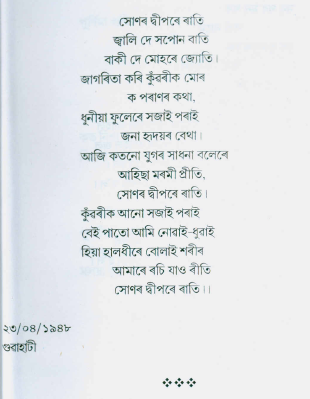 সোণৰ দ্বীপৰে ৰাতি
জ্বালি দে সপোন বাতি
বাকী দে মোহৰে জ্যোতি।
জাগৰিতা কৰি কুঁৱৰীক মোৰ
ক পৰাণৰ কথা,
ধুনীয়া ফুলেৰে সজাই পৰাই
জনা হৃদয়ৰ বেথা।
আজি কতনো যুগৰ সাধনা বলেৰে
আহিছা মৰমী প্ৰীতি,
সোণৰ দ্বীপৰে ৰাতি।
কুঁৱৰীক আনো সজাই পৰাই
বেই পাতো আমি নোৱাই-ধুৱাই
হিয়া হালধীৰে বোলাই শৰীৰ
আমাৰে ৰচি যাও ৰীতি
সোণৰ দ্বীপৰে ৰাতি।।
২৩/০৪/১৯৪৮
গুৱাহাটী